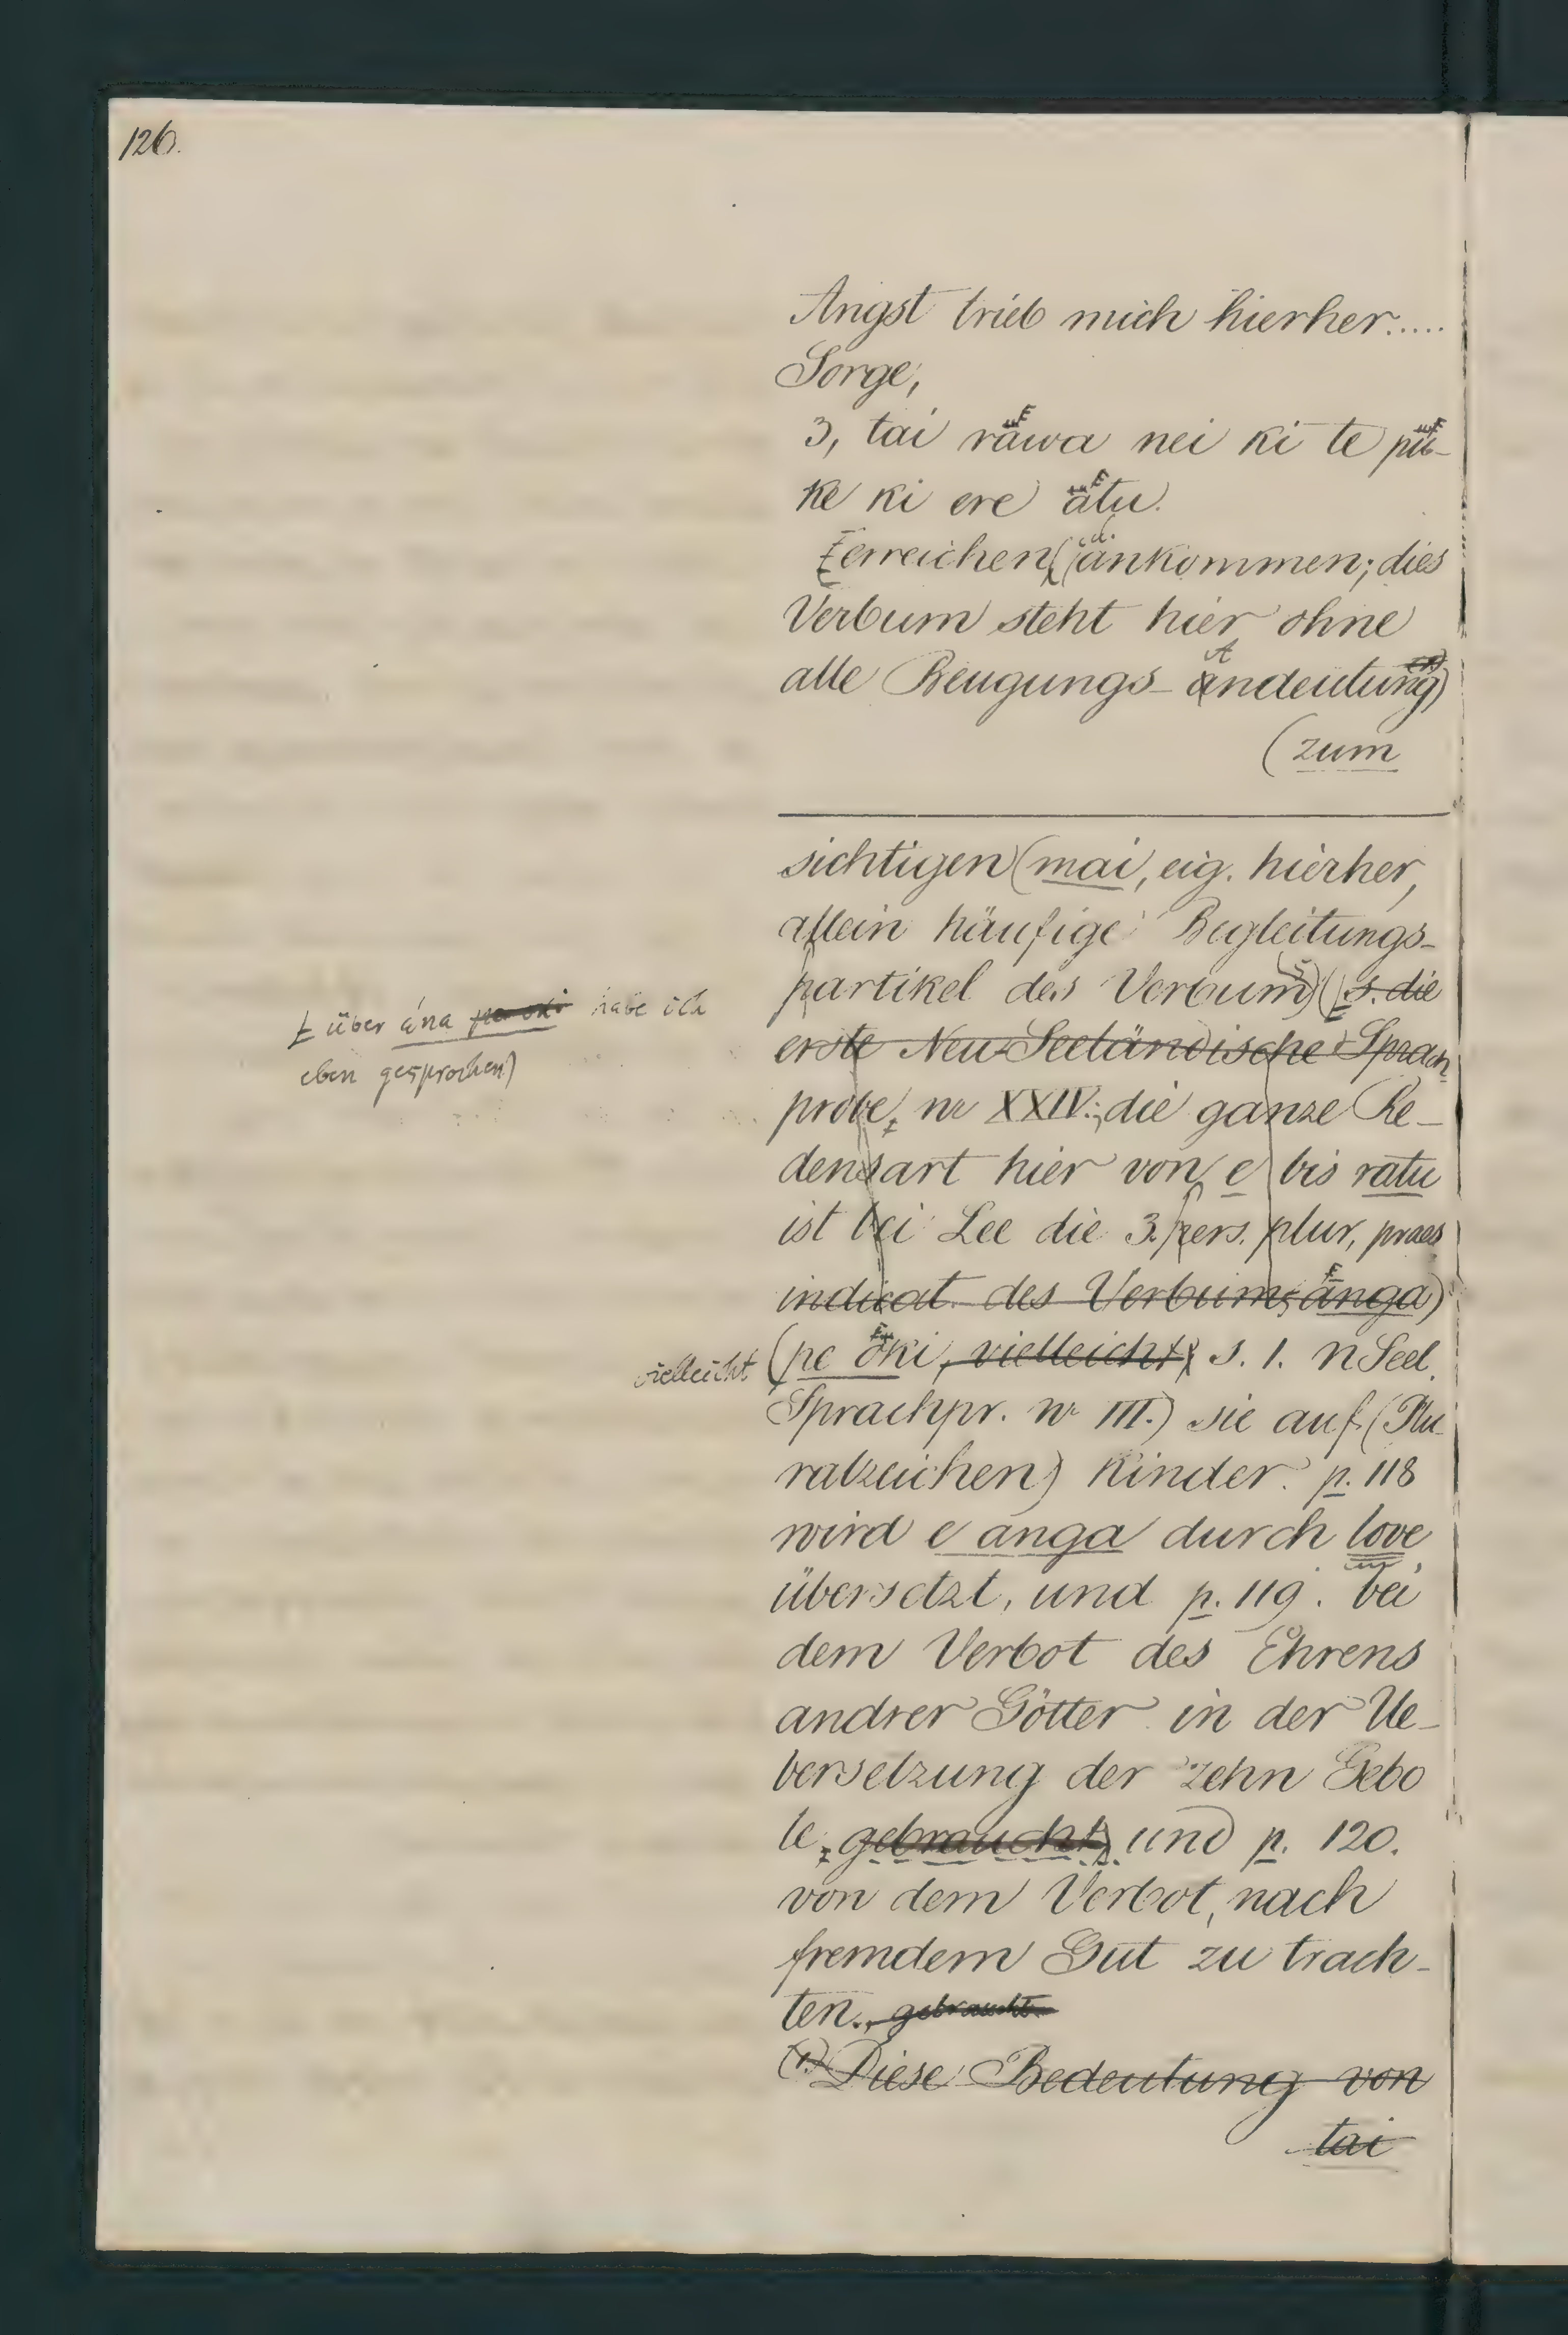 126.
Angst trieb mich hierher.....
Sorge,
3, tai räwa nei ki te pü-
ke ki ere ätu.
erreichen, (ankommen; dies
Verbum steht hier ohne
alle Beugungs-Andeutung)
(zum
sichtigen (mai, eig. hierher,
allein häufige Begleitungs-
partikel des Verbums) (s. die
erste Neu-Seeländische Sprach
probe, nr XXIV.; die ganze Re-
densart hier von e bis ratu
ist bei Lee die 3. pers. plur, praes
indicat. des Verbums änga)
über ána habe ich
eben gesprochen)
vielleicht (pe öki, vielleicht, s. 1. NSeel.
Sprachpr. nr III.) sie auf (Plu
ralzeichen) Kinder. p. 118
wird e anga durch love
übersetzt, und p. 119. bei
dem Verbot des Ehrens
andrer Götter in der Ue-
bersetzung der zehn Gebo
te, gebraucht, und p. 120.
von dem Verbot, nach
fremdem Gut zu trach-
ten., gebraucht
(1.) Diese Bedeutung von
tai